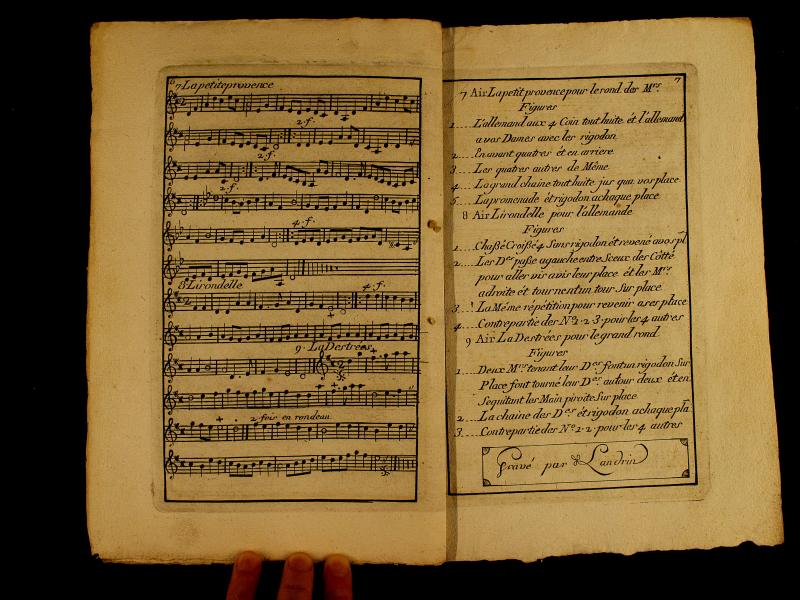 6
7 La petite provence
2. f.
2. f.
2. f.
4. f.
8 Lirondelle
4. f.
9. La Destrées
2 fois en rondeau
7
7 Air La petit provence pour le rond des Mrs
Figures
1 L'allemand aux 4 Coin tout huite et l'allemand
a vos Dames avec les rigodon
2 En avant quatres et en arriere
3 Les quatres autres de Même
4 La grand chaine tout huite jus qua vos place
5 La promenade et rigodon a chaque place
8 Air Lirondelle pour l'allemande
Figures
1 Chaßé Croißé 4 Sans rigodon et revené a vos pl
2 Les Des paße a gauche entre Sceux des Côtté
pour aller vis avis leur place et les Mrs
a droite et tournent un tour Sur place
3 La Même répétition pour revenir a ses place
4 Contrepartie des No 1. 2. 3. pour les 4 autres
9 Air La Destrées pour le grand rond
Figures
1 Deux Mrs tenant leur Des font un rigodon Sur
Place font tourné leur Des autour deux et en
Sequittant les Main piroite Sur place
2 La chaine des Des et rigodon a chaque pla
3 Contrepartie des No 1. 2. pour les 4 autres
Gravé par Landrin